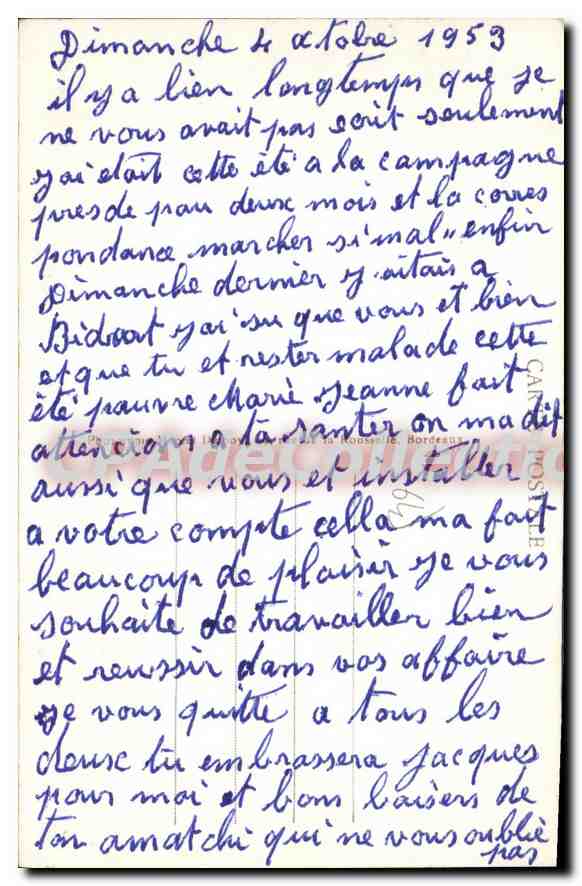 Dimanche 4 octobre 1953
il y a bien longtemps que je
ne vous avait pas ecrit seulement
j'ai etait cette été a la campagne
pres de pau deux mois et la corres
pondance marcher si mal" enfin
Dimanche dernier j'aitais a
Bidart j'ai su que vous et bien
et que tu et rester malade cette
été pauvre Marie Jeanne fait
attencions a ta santer on ma dit
aussi que vous et installer
a votre compte cella ma fait
beaucoup de plaisir je vous
souhaite de travailler bien
et reussir dans vos affaire
je vous quitte a tous les
deux tu embrassera Jacques
pour moi et bons baisers de
ton amatchi qui ne vous oublie
pas
CARTE POSTALE
Rousselle, Bordeaux
CPAdeCollection